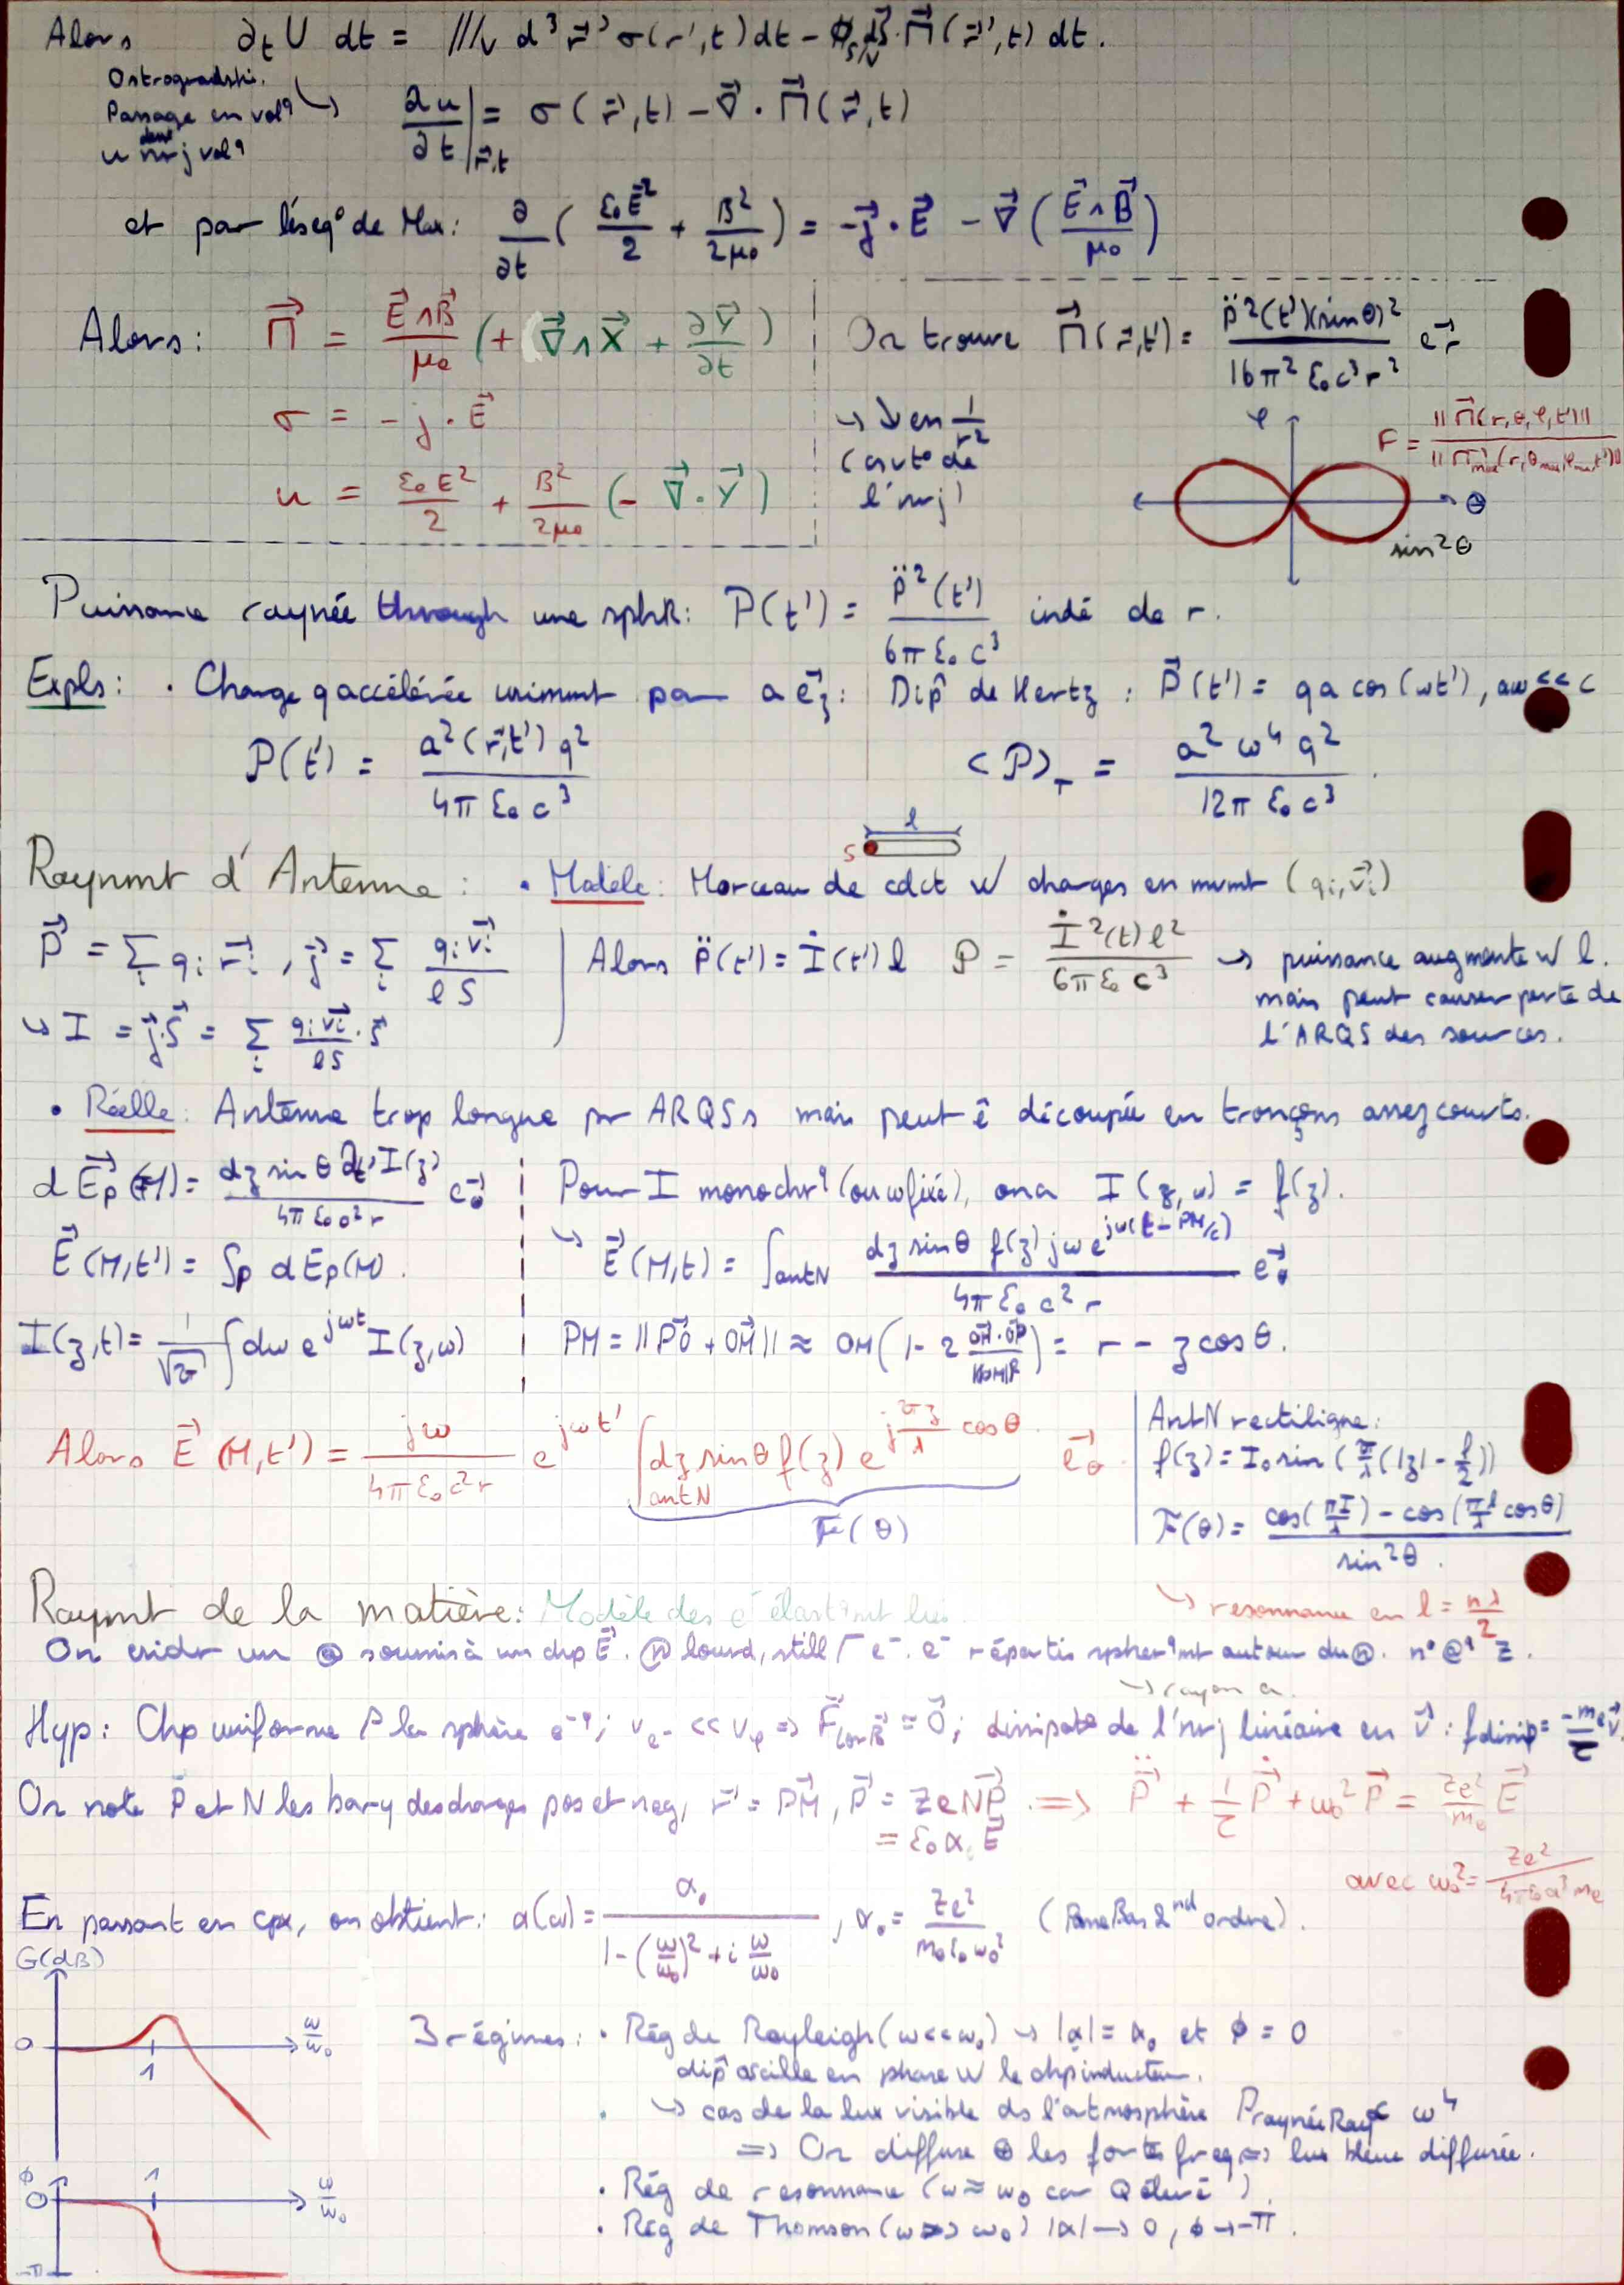 Alors ∂t U dt = ∭v d³r⃗' σ(r',t) dt − ∯S/V dS⃗·Π⃗(r⃗',t) dt.
Ostrogradski.
Passage en vol^q ↪ ∂u/∂t|r⃗,t = σ(r⃗,t) − ∇⃗·Π⃗(r⃗,t)
u dens nrj vol^q
et par les eq° de Max: ∂/∂t (ε₀E⃗²/2 + B²/2μ₀) = −j⃗·E⃗ − ∇⃗(E⃗∧B⃗/μ₀)
Alors: Π⃗ = E⃗∧B⃗/μ₀ (+ ∇⃗∧X⃗ + ∂Y⃗/∂t)
σ = −j·E⃗
u = ε₀E²/2 + B²/2μ₀ (− ∇⃗·Y⃗)
On trouve Π⃗(r⃗,t') = p̈²(t')(sinθ)²/16π²ε₀c³r² e⃗r
→ ↘ en 1/r²
(csvt° de
l'nrj)
φ
F = ||Π⃗(r,θ,φ,t')||/||Π⃗max(r,θmax,φmax,t')||
θ
sin²θ
Puissance raynée through une sphR: P(t') = p̈²(t')/6πε₀c³ indé de r.
Expls: · Charge q accélérée unimmnt par a e⃗z: Dip^ de Hertz: p⃗(t') = qa cos(ωt'), aω << c
P(t') = a²(r⃗,t')q²/4πε₀c³
<P>T = a²ω⁴q²/12πε₀c³.
S l
Raynmt d'Antenne: · Modèle: Morceau de cdct w/ charges en mvmt (qi, v⃗i)
P⃗ = Σi qi r⃗i, j⃗ = Σi qi v⃗i/lS
↪ I = j⃗·S⃗ = Σi qi v⃗i/lS · S⃗
Alors p̈(t') = İ(t') l P = İ²(t) l²/6πε₀c³ → puissance augmente w/ l.
mais peut causer perte de
l'ARQS des sources.
· Réelle: Antenne trop longue pr ARQSs mais peut ê découpée en tronçons assez courts.
dE⃗p(M) = dz sinθ ∂t' I(z)/4πε₀c²r e⃗θ
E⃗(M,t') = ∫p dEp(M).
I(z,t) = 1/√2π ∫dω e^jωt I(z,ω)
Pour I monochr^q (ou ω fixé), on a I(z,ω) = f(z).
↪ E⃗(M,t) = ∫antN dz sinθ f(z) jω e^jω(t−PM/c)/4πε₀c²r e⃗θ
PM = ||PO⃗ + OM⃗|| ≈ OM(1 − 2 OM⃗·OP⃗/||OM||²) = r − z cosθ.
Alors E⃗(M,t') = jω/4πε₀c²r e^jωt' ∫antN dz sinθ f(z) e^j2πz/λ cosθ e⃗θ.
F(θ)
AntN rectiligne:
f(z) = I₀ sin(2π/λ(|z| − l/2))
F(θ) = cos(πl/λ) − cos(πl/λ cosθ)/sin²θ.
↪ resonnance en l = nλ/2
Raynmt de la matière: Modèle des e⁻ élast^q mt liés
On csidr un @ soumis à un chp E⃗. ⓝ lourd, still / e⁻. e⁻ répartis spher^q mt autour du ⓝ. n° @^q Z.
→ rayon a.
Hyp: Chp uniforme / la sphère e⁻^q; ve⁻ << vφ ⇒ F⃗lorB = 0⃗; dissipat° de l'nrj linéaire en v⃗: fdissip = −me/τ v⃗.
On note P et N les bary des charges pos et neg, r⃗ = PM⃗, p⃗ = ZeNP⃗ ⇒ p̈⃗ + 1/τ ṗ⃗ + ω₀² p⃗ = Ze²/me E⃗
= ε₀α E⃗
avec ω₀² = Ze²/4πε₀a³me
En passant en cpx, on obtient: α(ω) = α₀/1−(ω/ω₀)²+i ω/ω₀, α₀ = Ze²/meε₀ω₀² (PasseBas 2nd ordre).
G(dB)
0 1 ω/ω₀
ϕ
0 1 ω/ω₀
−π
3 régimes: · Rég de Rayleigh (ω<<ω₀) → |α| = α₀ et ϕ = 0
dip^ oscille en phase w/ le chp inducteur.
· ↪ cas de la lux visible ds l'atmosphère PraynéeRay ∝ ω⁴
⇒ On diffuse ⊕ les fortes freq ⇒ lux bleue diffusée.
· Rég de resonnance (ω≈ω₀ car Q élevé)
· Rég de Thomson (ω>>ω₀) |α|→0, ϕ→−π.